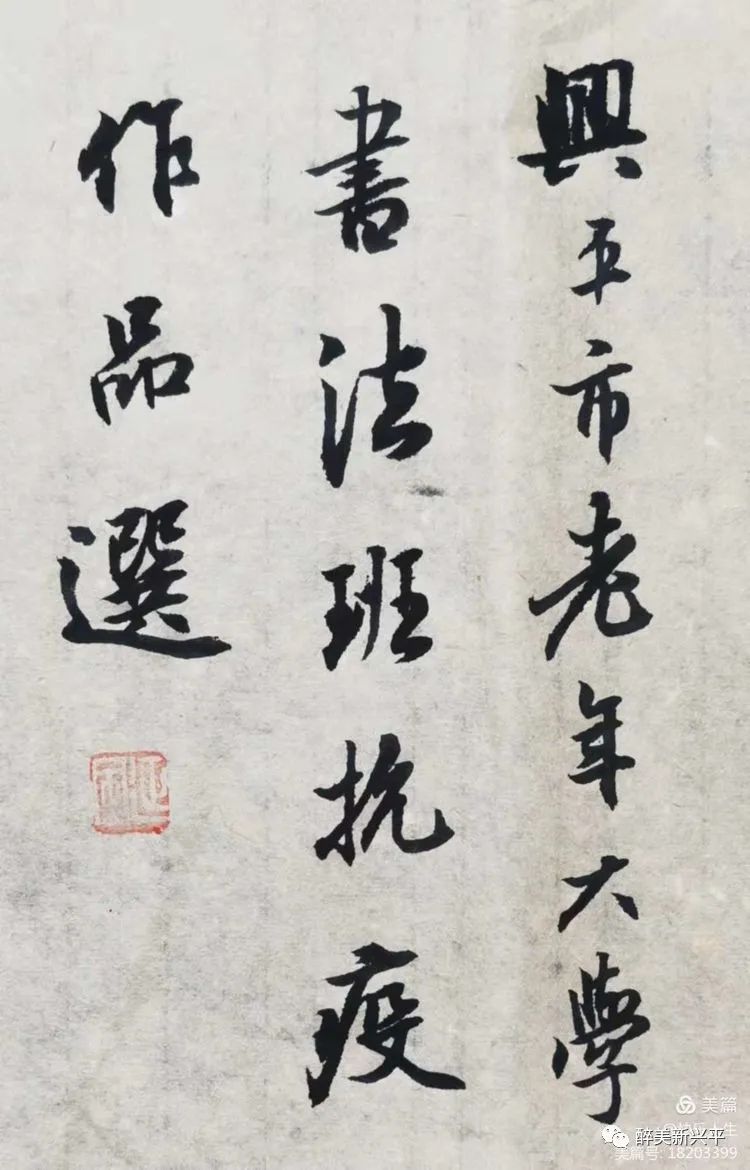 興平市老年大學
書法班抗疫
作品選
美篇
醉美新兴平
美篇号: 18203399